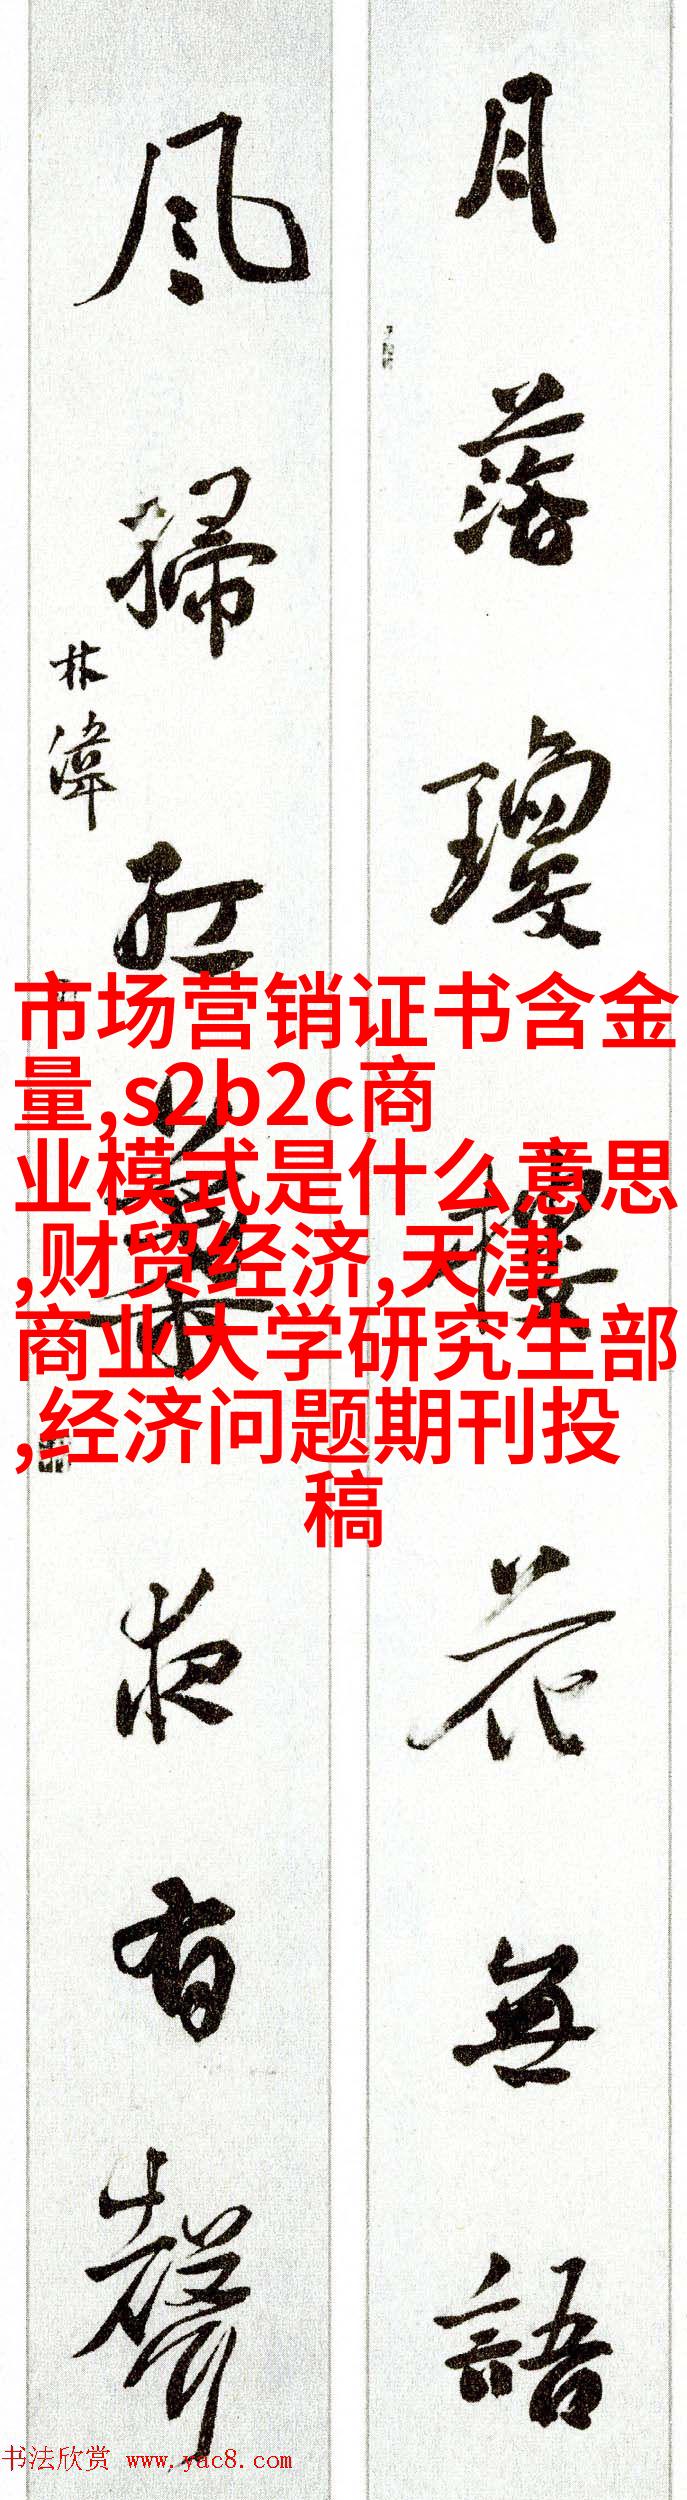 月落瓊樓花無語
風掃紅葉夜有聲
林潭
市场营销证书含金
量,s2b2c商
业模式是什么意思
,财贸经济,天津
商业大学研究生部
,经济问题期刊投
稿
书法欣赏 www.yac8.com